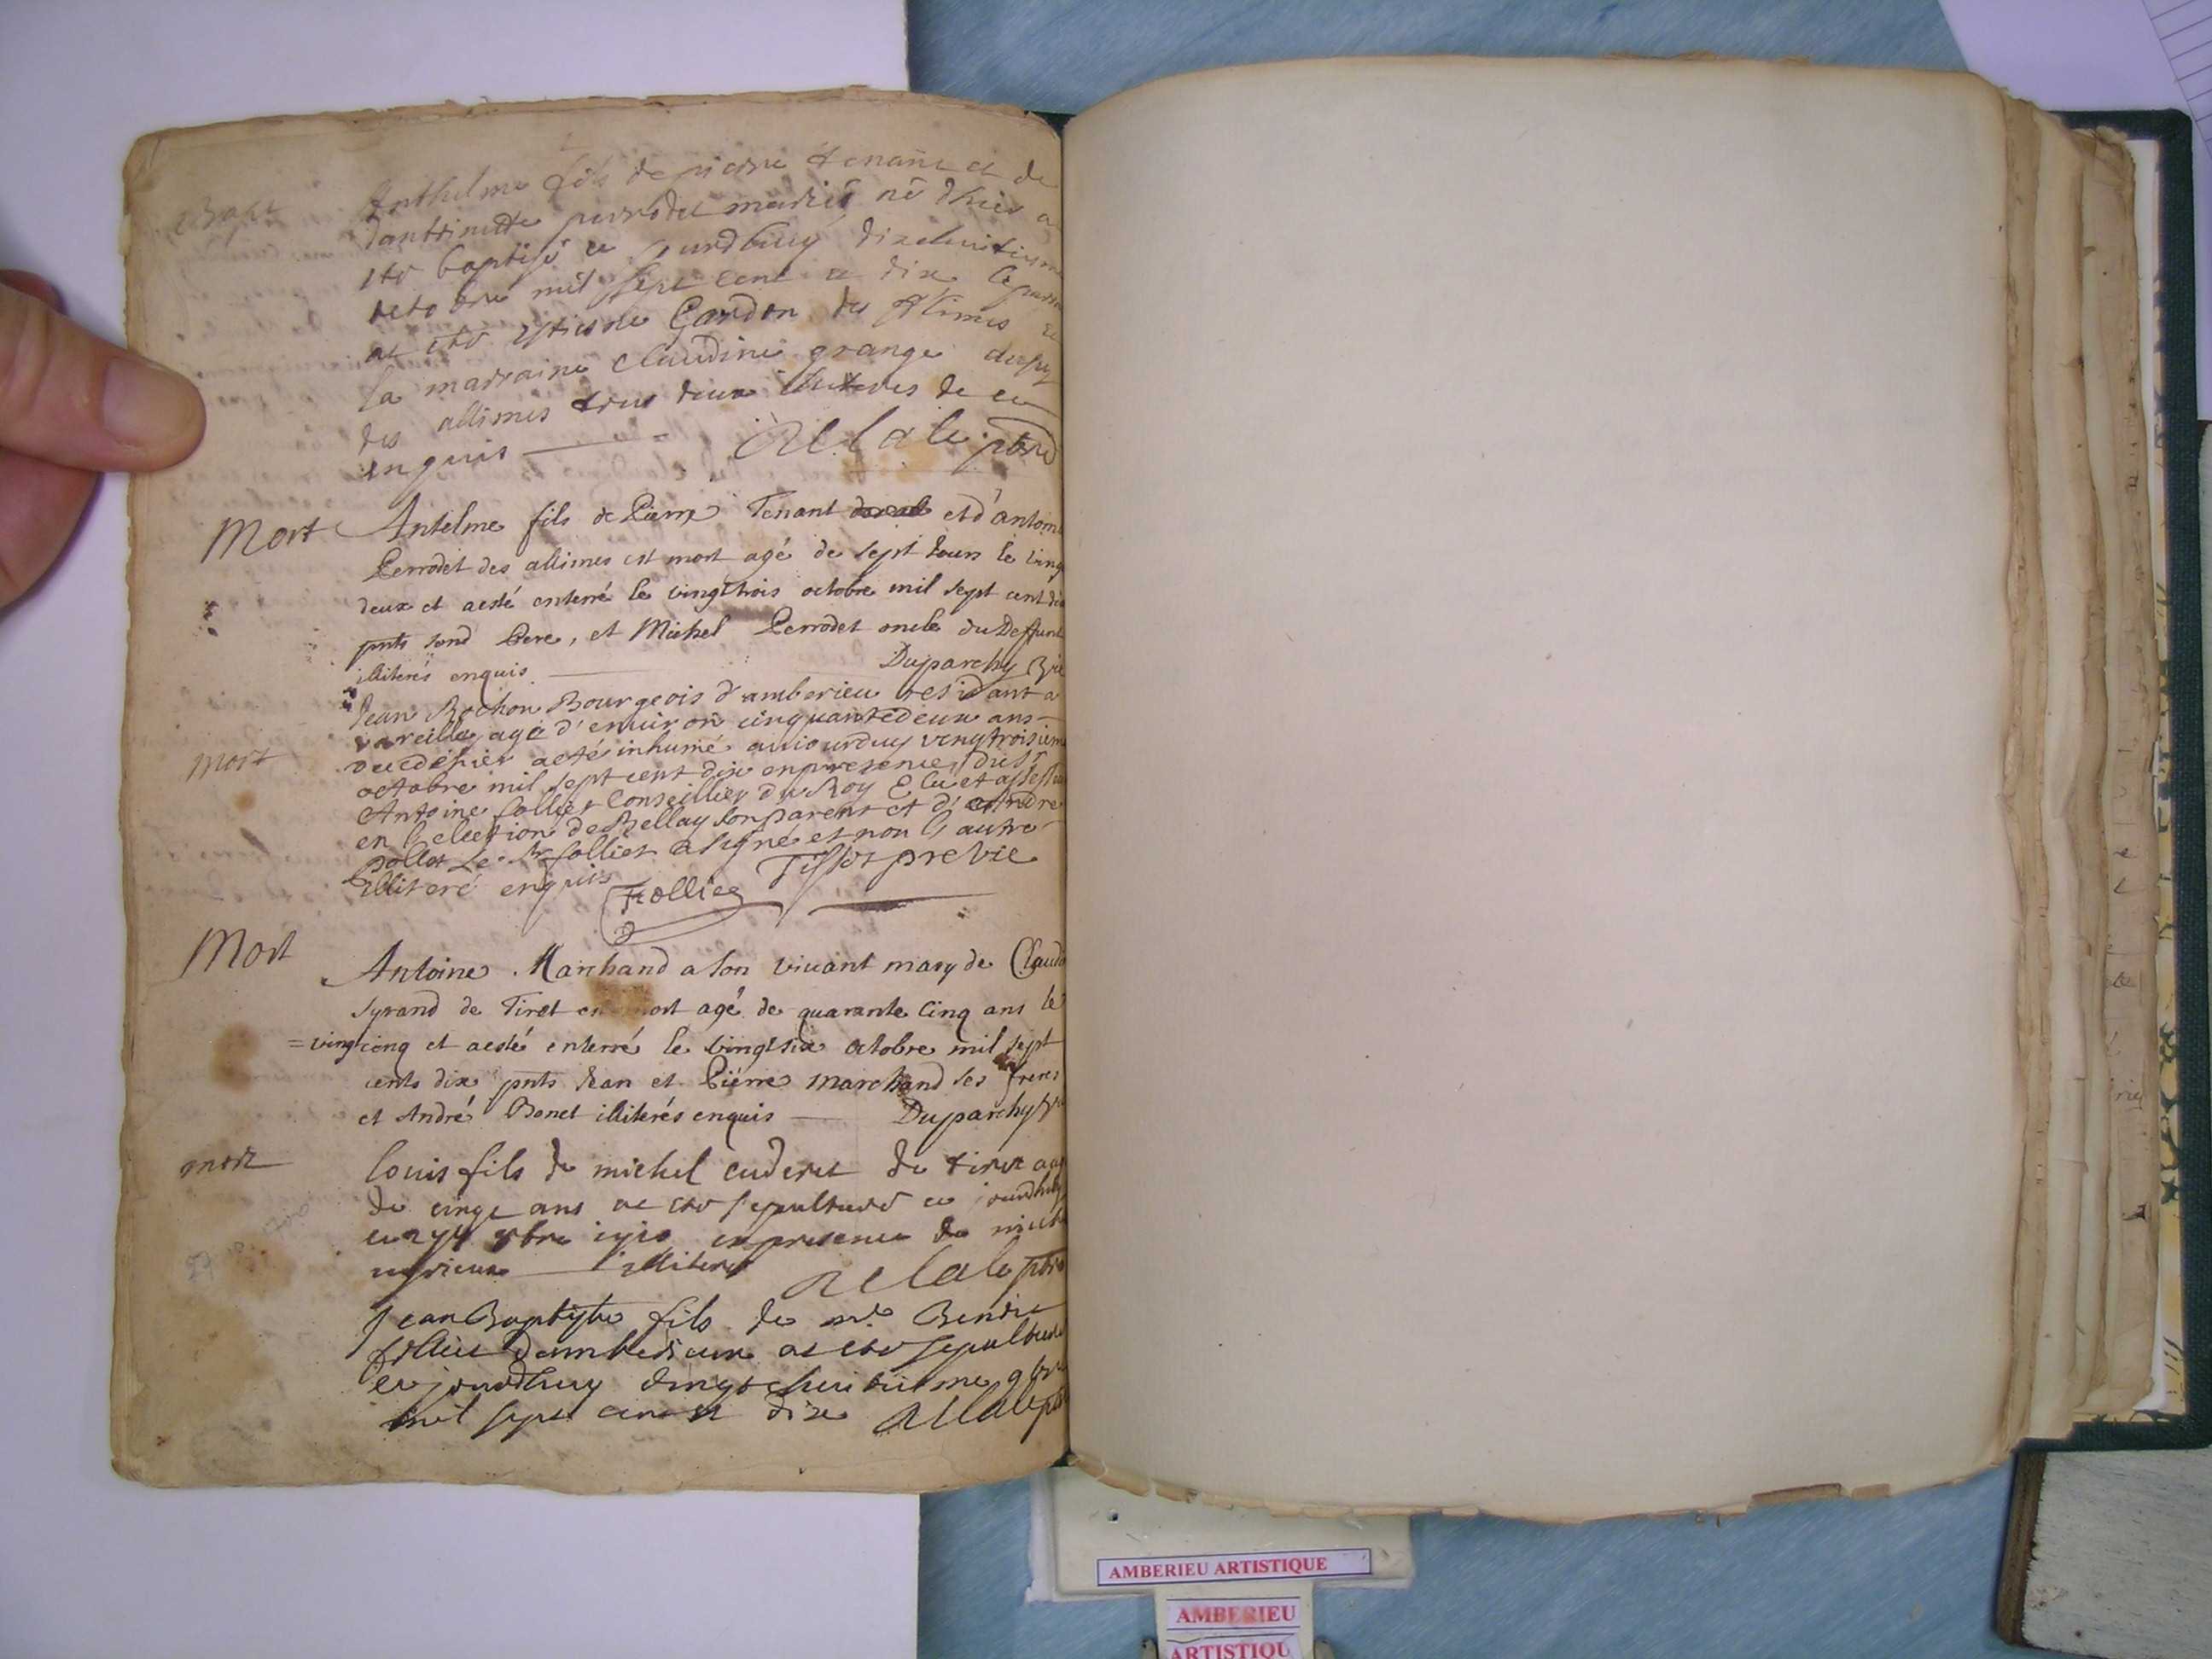 Bapt
Anthelme fils de pierre tenant et de
dantoinette perrodet mariés né dhier a
este baptisé ce jourdhuy dixhuitiesme
octobre mil sept cent et dix le parrain
at esté estienne Gardon des Alimes et
la marraine claudine grange
des allimes tous deux de ce
enquis Relale ptre
Mort
Antelme fils de Pierre Tenant et d'antoine
Perrodet des allimes est mort agé de sept Jours le ving
deux et aesté enterré le vingtrois octobre mil sept cent dix
pnts sond Pere, et Michel Perrodet oncle du Deffunt
illiterés enquis Duparchy
mort
Jean Rochon Bourgeois d'amberieu residant a
vareilles agé d'enuiron cinquantedeux ans
decede hier aeté inhumé auiourduy vengtroisieme
octobre mil sept cent dix enpresence du Sr
Antoine folliet Conseillier du Roy Elu et assesseur
en l'election de Bellay son parent et d'andre
pollet Le Sr folliet a signé et non l'autre
illiteré enquis Tissot pre vic
Folliet
Mort
Antoine Marchand a son viuant mary de Claudi
Syrand de Tiret est mort agé de quarante Cinq ans le
=vingtcinq et aesté enterré le vingtsix Octobre mil sept
cents dix pnts Jean et Pierre marchand ses freres
et André Bonet illiterés enquis Duparchy
mort
louis fils de michel cuderet de tiret aagé
de cinqt ans at esté sepulturé ce jourdhuy
ce 27 8bre 1710 en presence de
illiteré Relale ptre
Jean Baptiste fils de mr Benoit
folliet dambérieux at esté sepulturé
ce jourdhuy vingt huitiesme 8bre
mil sept cent et dix Relale ptre
AMBERIEU ARTISTIQUE
AMBERIEU
ARTISTIQU